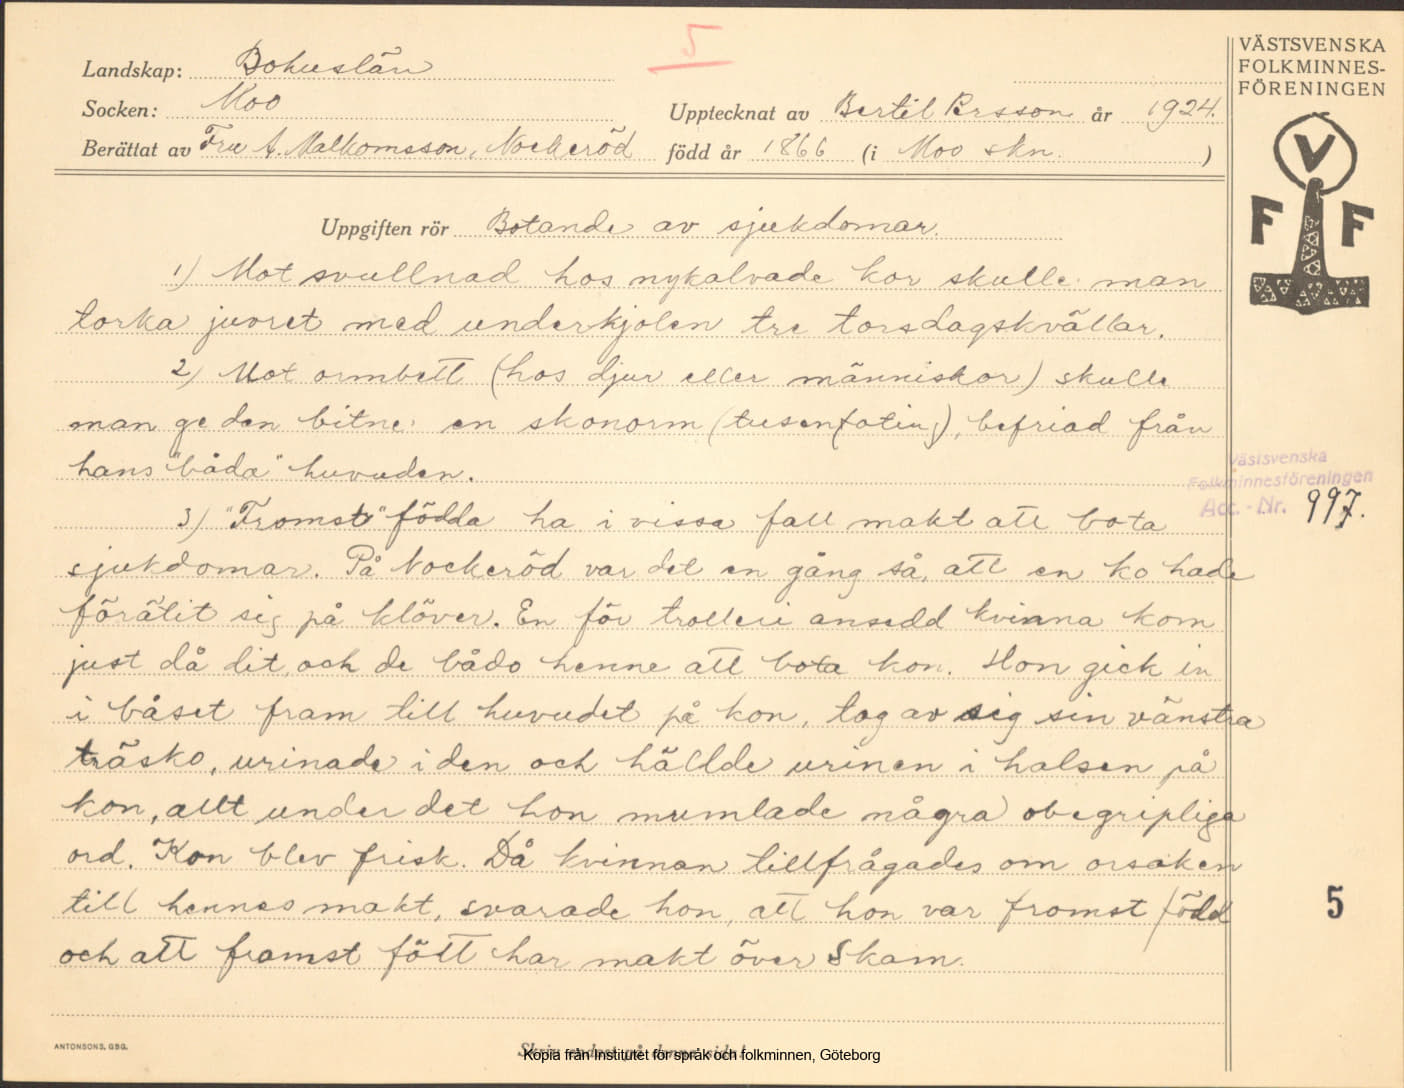 5
VÄSTSVENSKA
FOLKMINNES-
FÖRENINGEN
V
F F
Landskap: Bohuslän
Socken: Moo
Upptecknat av Bertil Persson år 1924.
Berättat av Fru A. Malkomsson, Nockeröd född år 1866 (i Moo skn. )
Uppgiften rör Botande av sjukdomar.
1) Mot svullnad hos nykalvade kor skulle man
torka juvret med underkjolen tre torsdagskvällar.
2) Mot ormbett (hos djur eller människor) skulle
man ge den bitne en skonorm (tusenfoting), befriad från
hans "båda" huvuden.
Västsvenska
Folkminnesföreningen
Acc.-Nr. 997.
3) "Fromst" födda ha i vissa fall makt att bota
sjukdomar. På Nockeröd var det en gång så, att en ko hade
förätit sig på klöver. En för trolleri ansedd kvinna kom
just då dit, och de bådo henne att bota kon. Hon gick in
i båset fram till huvudet på kon, tog av sig sin vänstra
träsko, urinade i den och hällde urinen i halsen på
kon, allt under det hon mumlade några obegripliga
ord. Kon blev frisk. Då kvinnan tillfrågades om orsaken
till hennes makt, svarade hon, att hon var fromst född
och att framst fött har makt över Skam.
5
ANTONSONS, GBG.
Skriv endast på denna sida!
Kopia från Institutet för språk och folkminnen, Göteborg